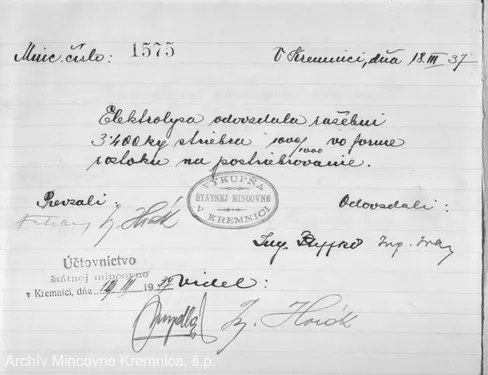 Minc. číslo: 1575
V Kremnici, dňa 18.III 37
Elektrolysa odovzdala razebni
3.400 kg striebra 1000/1000 vo forme
roztoku na postriebrovanie.
VÝKUPŇA
ŠTÁTNEJ MINCOVNE
V KREMNICI
Prevzali:
Odovzdali:
Horák
Ing.
Ing.
Účtovníctvo
štátnej mincovne
v Kremnici, dňa 19/III 1937
Videl:
Horák
Archív Mincovne Kremnica, š.p.